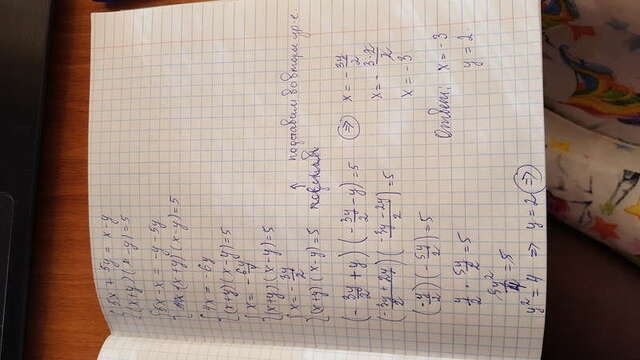 { 5x + 5y = x - y
{ (x+y)(x-y) = 5
{ 5x - x = -y - 5y
{ (x+y)(x-y) = 5
{ 4x = -6y
{ (x+y)(x-y) = 5
{ x = -6y/4
{ (x+y)(x-y) = 5
{ x = -3y/2
{ (x+y)(x-y) = 5
↑ подставим во втором ур-е.
(-3y/2 + y)(-3y/2 - y) = 5
(-3y+2y/2)(-3y-2y/2) = 5
(-y/2)(-5y/2) = 5
y/2 · 5y/2 = 5
5y²/4 = 5
y² = 4 ⇒ y = 2 ⇒
⇒ x = -3y/2
x = -3·2/2
x = -3
Ответ: x = -3
y = 2